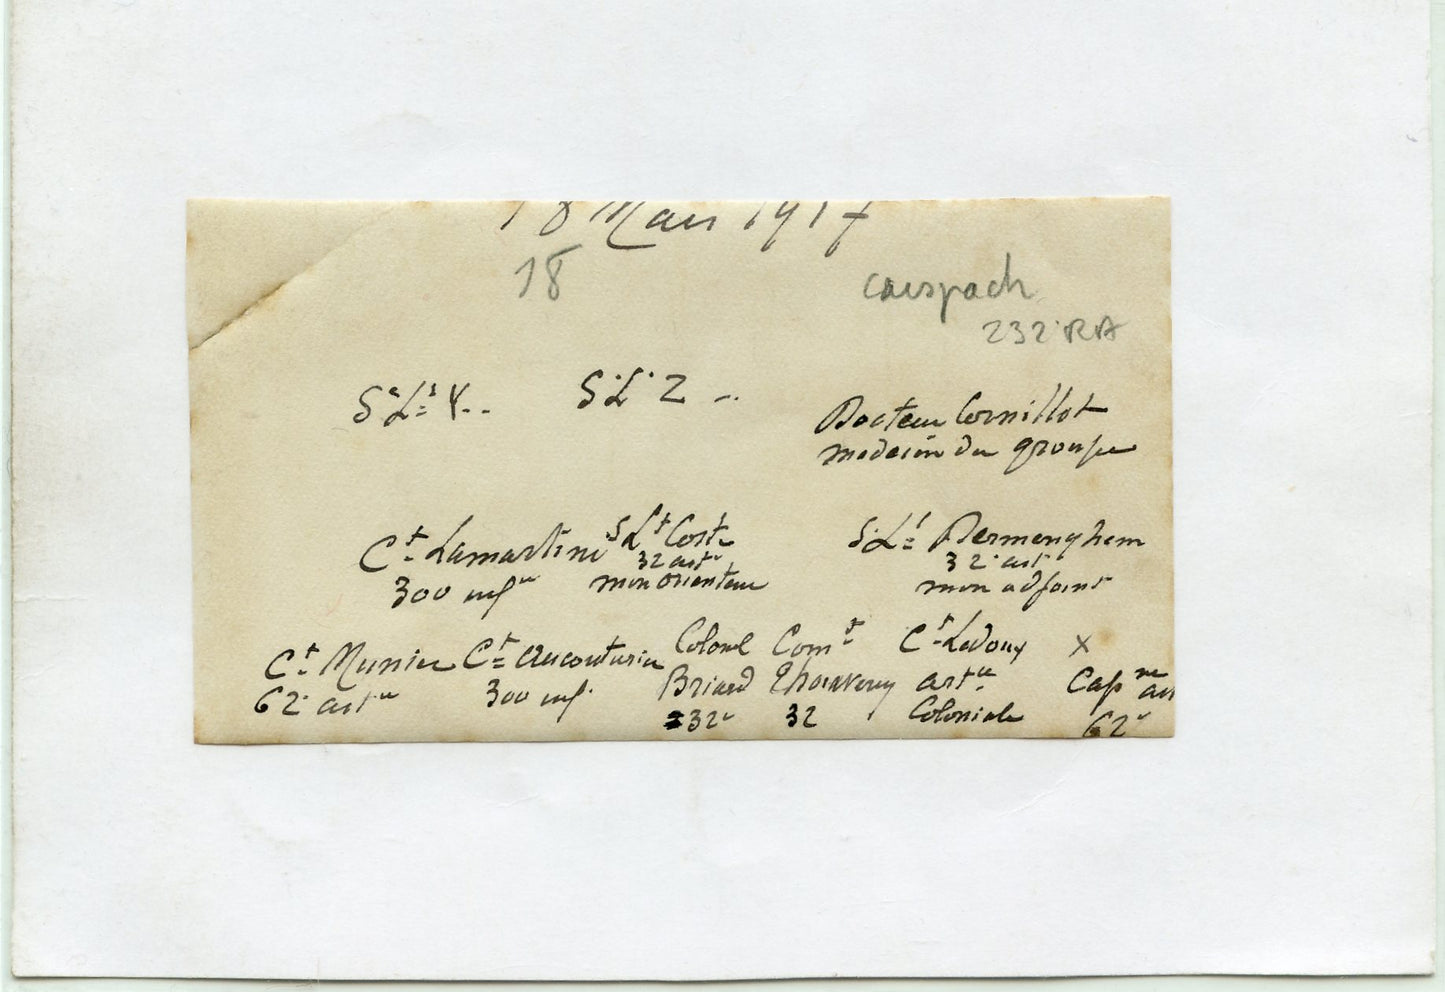 18 Mars 1917
18
carspach
232e RA
S.Lt Y..
S.Lt Z ..
Docteur Cornillot
medecin du groupe
Ct Lamartine
300 infie
S Lt Coste
32 artie
mon orienteur
S.Lt Dermenghem
32e art
mon adjoint
Ct Munier
62e artie
Ct Aucouturier
300 inf.
Colonel
Briard
232e
Comt
32
Ct Ledoux
artie
Coloniale
X
Capne
62e